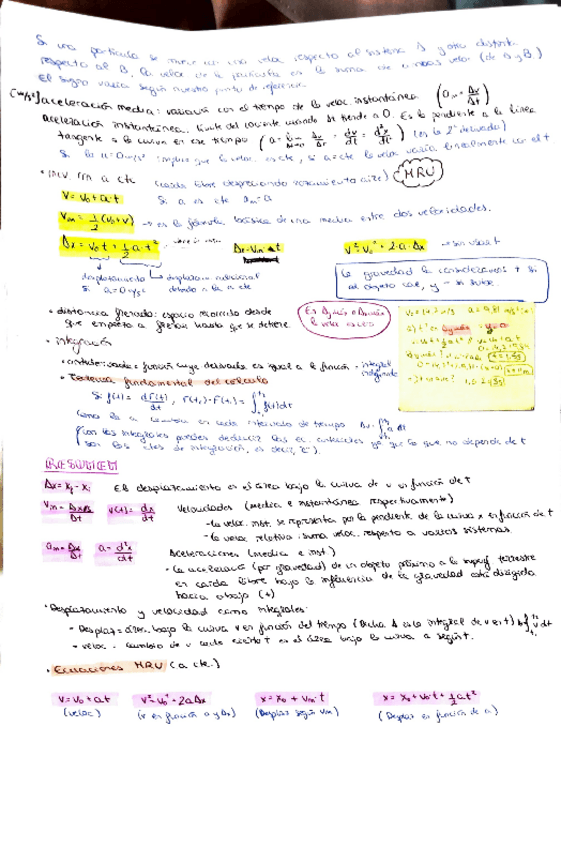 Si una partícula se mueve con una veloc. respecto al sistema A y otra distinta
respecto al B, la veloc de la partícula es la suma de ambas veloc (de A y B.)
El signo varía según nuestro punto de referencia.
[m/s²] aceleración media: variación con el tiempo de la veloc. instantánea (am = Δv/Δt)
aceleración instantánea. límite del cociente cuando Δt tiende a 0. Es la pendiente a la línea
tangente a la curva en ese tiempo (a = lim Δt→0 Δv/Δt = dv/dt = d²x/dt²) (es la 2ª derivada)
Si la a = 0 m/s² implica que la veloc. es cte, si a = cte la veloc varía linealmente con el t
a cte (caída libre despreciando rozamiento aire) MRU
v = v₀ + a·t Si a es cte am = a
Vm = 1/2 (v₀ + v) → es la fórmula básica de una media entre dos velocidades.
Δx = v₀t + 1/2 a·t², Δx = Vm·Δt v² = v₀² + 2·a·Δx → sin usar t
desplazamiento desplazam. adicional
si a = 0 m/s² debido a la a cte
La gravedad la consideramos + si
el objeto cae, y - si sube.
• distancia frenado: espacio recorrido desde
que empieza a frenar hasta que se detiene.
• integración
• antiderivada = función cuya derivada es igual a la función - integral
indefinida
• Teorema fundamental del cálculo
Si f(t) = dF(t)/dt, F(t₂) - F(t₁) = ∫ f(t) dt
como la a cambia en cada intervalo de tiempo Δv = ∫ a dt
(con las integrales puedes deducir las ec. anteriores ya que lo que no depende de t
son las ctes de integración, es decir, "c").
RESUMEN
Δx = xf - xi El desplazamiento es el área bajo la curva de v en función de t
Vm = Δx/Δt v(t) = dx/dt Velocidades (media e instantánea respectivamente)
- la veloc. inst. se representa por la pendiente de la curva x en función de t
- la veloc. relativa: suma veloc. respecto a varios sistemas
am = Δv/Δt a = d²x/dt² Aceleraciones (media e inst)
• La aceleración (por gravedad) de un objeto próximo a la superf. terrestre
en caída libre bajo la influencia de la gravedad está dirigida
hacia abajo (+)
• Desplazamiento y velocidad como integrales:
- Desplaz = área bajo la curva v en función del tiempo (Dicha A es la integral de v en t) ∫ v dt
- veloc = cambio de v cada cierto t es el área bajo la curva a según t.
• Ecuaciones MRU (a cte.)
v = v₀ + at v² = v₀² + 2aΔx x = x₀ + Vm·t x = x₀ + v₀·t + 1/2 at²
(veloc) (v en función a y Δx) (Desplaz según Vm) (Desplaz en función de a)